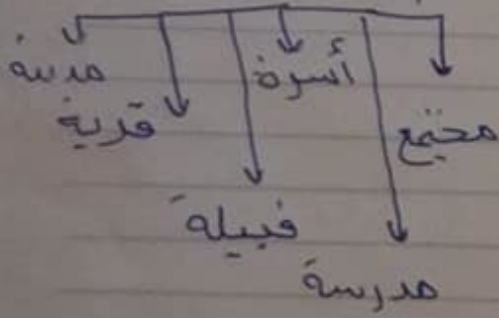 مجتمع
مدرسة
أسرة
قبيلة
قرية
مدينة